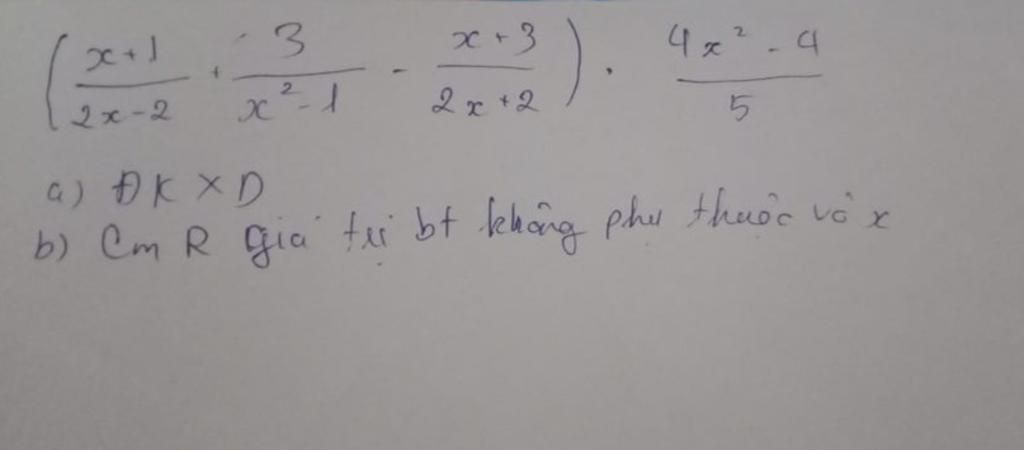 ( x+1 / 2x-2 + 3 / x²-1 - x+3 / 2x+2 ) . 4x²-4 / 5
a) ĐKXD
b) CmR giá trị bt không phụ thuộc vô x